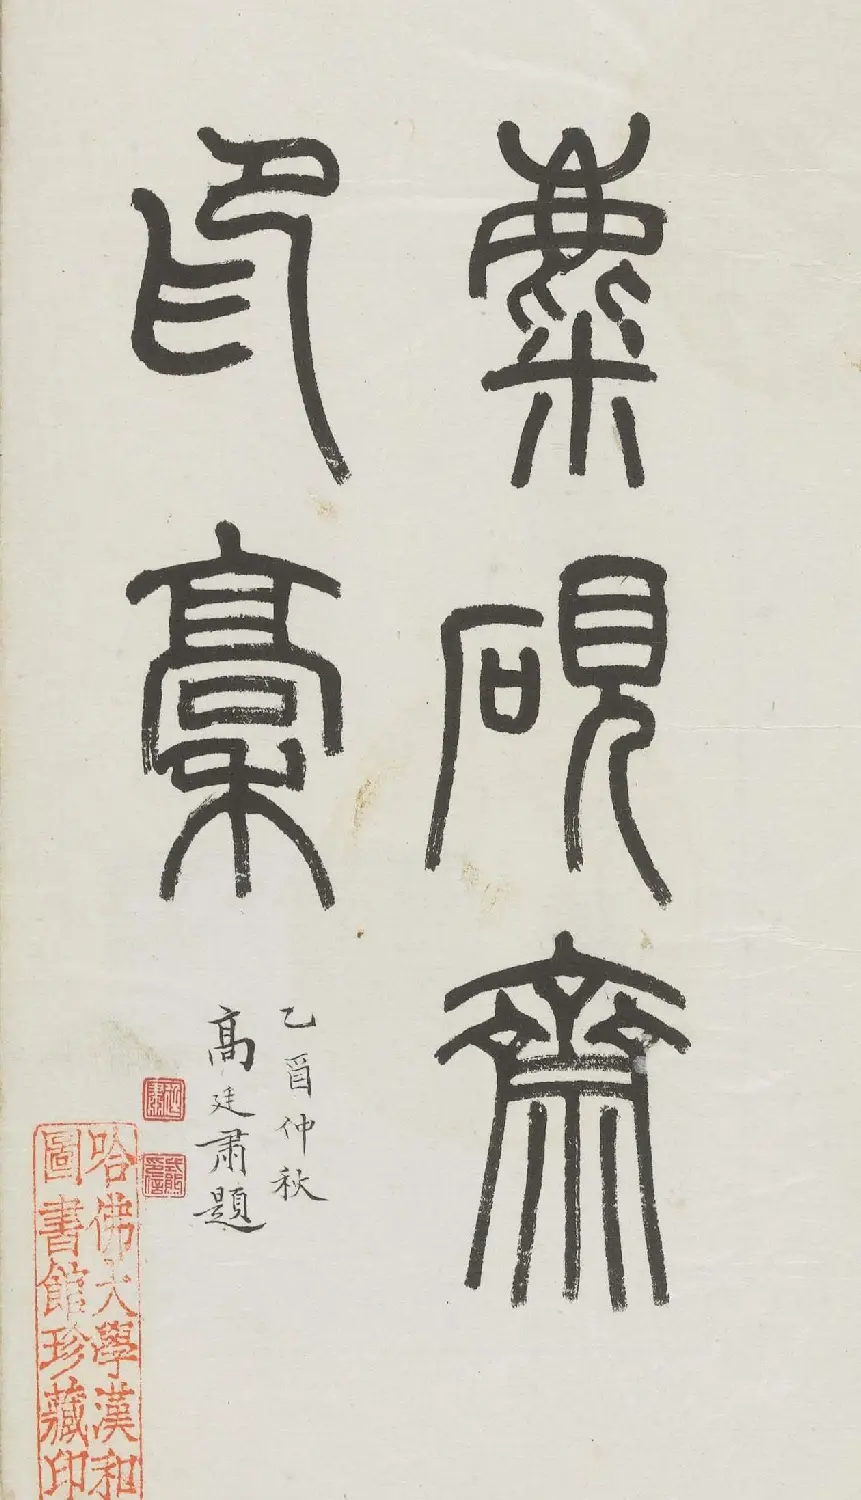 麋硯齋
印稾
乙酉仲秋
高廷肅題
廷肅
哈佛大學漢和
圖書館珍藏印